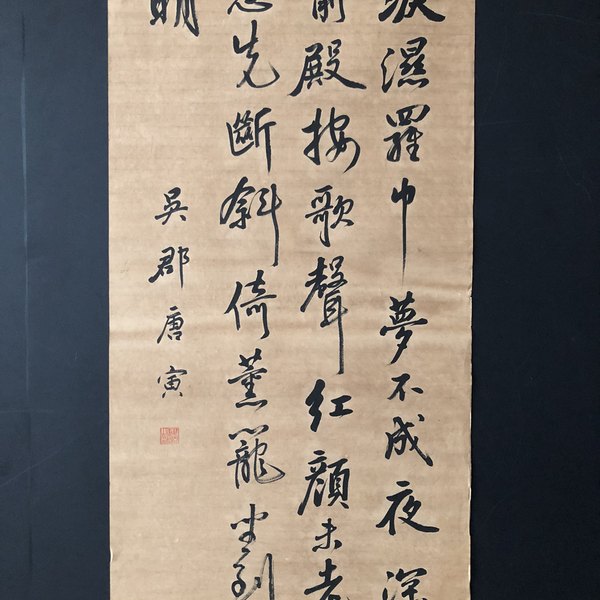 淚濕羅巾夢不成夜深
前殿按歌聲紅顏未老
恩先斷斜倚薰籠坐到
明
吳郡唐寅